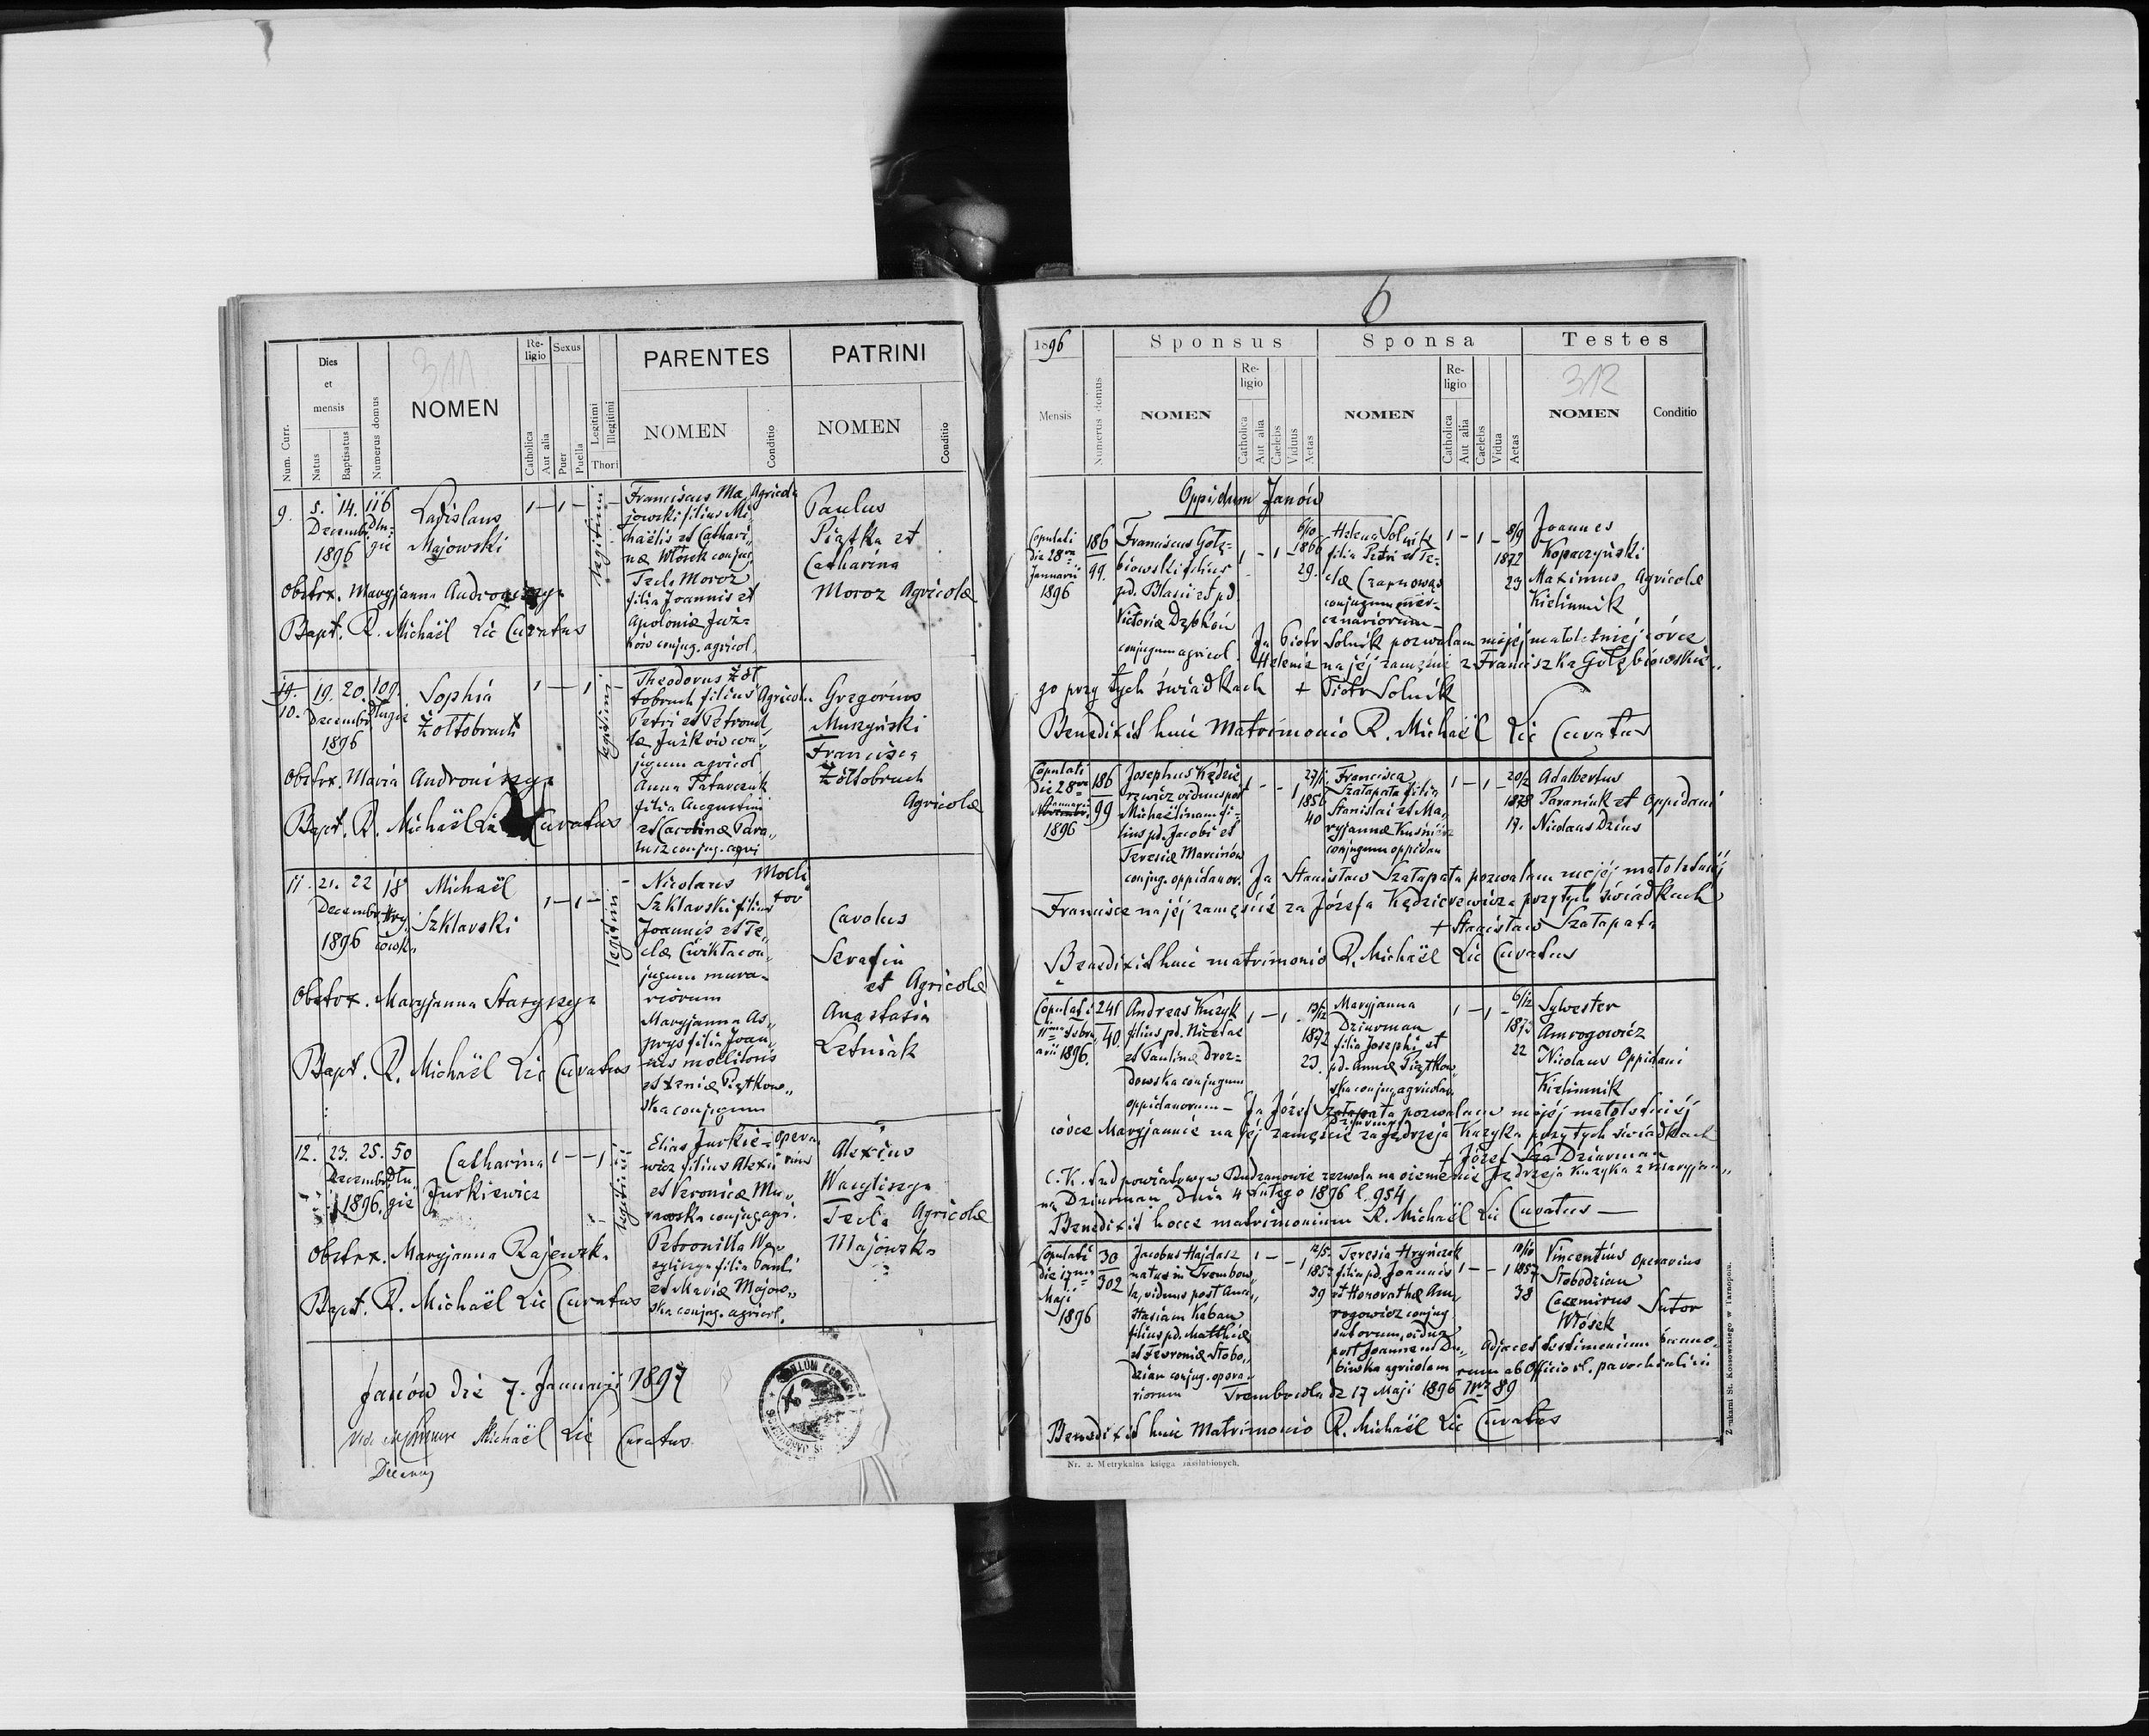 311
Num. Curr.
Dies et mensis
Natus
Baptisatus
Numerus domus
NOMEN
Religio
Catholica
Aut alia
Sexus
Puer
Puella
Legitimi
Illegitimi
Thori
PARENTES
NOMEN
Conditio
PATRINI
NOMEN
Conditio
9. 5. 14. 116
Decembr. Dłu-
1896 gie
Ladislaus
Majowski
1 — 1 —
legitimi
Franciscus Ma- Agricola
jowski filius Mi-
chaëlis et Cathari-
næ Włosek conjug.
Tecla Moroz
filia Joannis et
Apoloniæ Juź-
ków conjug. agricol.
Paulus
Piątka et
Catharina
Moroz Agricolæ
Obstrx. Maryjanna
Bapt. R. Michaël Lic Curatus
10. 19. 20. 109.
Decembr. Długie
1896
Sophia
Żółtobruch
1 — — 1
legitimi
Theodorus Żół-
tobruch filius Agricola
Petri et Petronel-
læ Juźków con-
jugum agricol
Anna Patarczuk
filia Augustini
et Carolinæ Para-
conjug. agri
Gregorius
Muszyński
Francisca
Żółtobruch
Agricolæ
Obstrx. Maria
Bapt. R. Michaël Lic Curatus
11. 21. 22 18
Decembr.
1896
Michaël
Szklarski
1 — 1 —
legitimi
Nicolaus Moli-
Szklarski filius tor
Joannis et Te-
clæ Ćwikła con-
jugum mura-
riorum
Maryjanna As-
prys filia Joan-
nis molitoris
et Xeniæ Piątkow-
ska conjugum
Carolus
Serafin
et Agricolæ
Anastasia
Letniak
Obstrx. Maryjanna
Bapt. R. Michaël Lic Curatus
12. 23. 25. 50
Decembr. Dłu-
1896. gie
Catharina
Jurkiewicz
1 — — 1
legitimi
Elias Jurkie- opera-
wicz filius Alexii rius
et Veronicæ Mu-
rawska conjug. agri.
Petronilla Wa-
syliszyn filia Pauli
et Mariæ Majow-
ska conjug. agricol.
Alexius
Wasyliszyn
Tecla Agricolæ
Majowska
Obstrx. Maryjanna Rajewsk.
Bapt. R. Michaël Lic Curatus
Janów die 7. Januarii 1897
Michaël Lic Curatus
6
1896
Mensis
Numerus domus
Sponsus
NOMEN
Religio
Catholica
Aut alia
Caelebs
Viduus
Aetas
Sponsa
NOMEN
Religio
Catholica
Aut alia
Caelebs
Vidua
Aetas
Testes
312
NOMEN
Conditio
Oppidum Janów
Copulati
die 28va
Januarii
1896
186
99.
Franciscus Gołę-
biowski filius
pd. Blasii et pd
Victoriæ Dąbkón
conjugum agricol.
1 — 1 —
6/10
1866
29.
Helena Solnik
filia Petri et Te-
clæ Czarnowąs
conjugum mer-
cenariorum
1 — 1 —
8/9
1872
23
Joannes
Kopaczyński
Maximus Agricolæ
Kielimnik
Ja Piotr Solnik pozwalam mojéj małoletniéj córce
Helenie na jéj zamęście z Franciszka Gołębiowskie-
go przy tych świadkach + Piotr Solnik
Benedixit huic Matrimonio R. Michaël Lic Curatus
Copulati
die 28va
Januarii
1896
186
99
Josephus Kędzie-
rzewicz viduus post
Michaëlinam fi-
lius pd. Jacobi et
Teresiæ Marcinów
conjug. oppidanor.
1 — — 1
27/1
1856
40
Francisca
Szałapata filia
Stanislai et Ma-
ryjannæ Kuśnierz
conjugum oppidan
1 — 1 —
20/2
1878
17.
Adalbertus
Paraniuk et Oppidani
Nicolaus Dzius
Ja Stanisław Szałapata pozwalam mojéj małoletniéj
Francisce na jéj zamęście za Józefa Kędzierzewicza przy tych świadkach
+ Stanisław Szałapata
Benedixit huic matrimonio R. Michaël Lic Curatus
Copulati
11ma Febru-
arii 1896.
241
40.
Andreas Kuzyk
filius pd. Nicetae
et Paulinæ Droz-
dowska conjugum
oppidanorum
1 — 1 —
13/12
1872
23.
Maryjanna
Dziurman
filia Josephi et
pd. Annæ Piątkow-
ska conjug. agricolar.
1 — 1 —
6/12
1873
22
Sylwester
Amrogowicz
Nicolaus Oppidani
Kielimnik
Ja Józef Szałapata Dziurman pozwalam mojéj małoletniéj
córce Maryjannie na jéj zamęście za Jędrzeja Kuzyka przy tych świadkach
+ Józef Sza Dziurman
C. K. Sąd powiatowy w Budzanowie zezwala na ożenienie Jędrzeja Kuzyka z Maryjan-
ną Dziurman dnia 4 Lutego 1896 l. 954
Benedixit hocce matrimonium R. Michaël Lic Curatus —
Copulati
die 17ma
Maji
1896
30
302
Jacobus Hajdasz
natus in Trembow-
la, viduus post Ana-
stasiam Keban
filius pd. Matthiæ
et Fevroniæ Słobo-
dzian conjug. opera-
riorum
1 — — 1
12/5
1857
39
Teresia Hryńczak
filia pd. Joannis
et Horovathæ Am-
rogowicz conjug
sutorum, vidua
post Joannem Du-
binska agricolam
1 — — 1
10/10
1857
38
Vincentius Operarius
Słobodzian
Casemirus Sutor
Włósek
Adjacet testimonium banno-
rum ab Officio rl. parochialini
Trembowla de 17 Maji 1896 Nr 89
Benedixit huic Matrimonio R. Michaël Lic Curatus
Nr. 2. Metrykalna księga zaślubionych.
Z drukarni St. Kossowskiego w Tarnopolu.